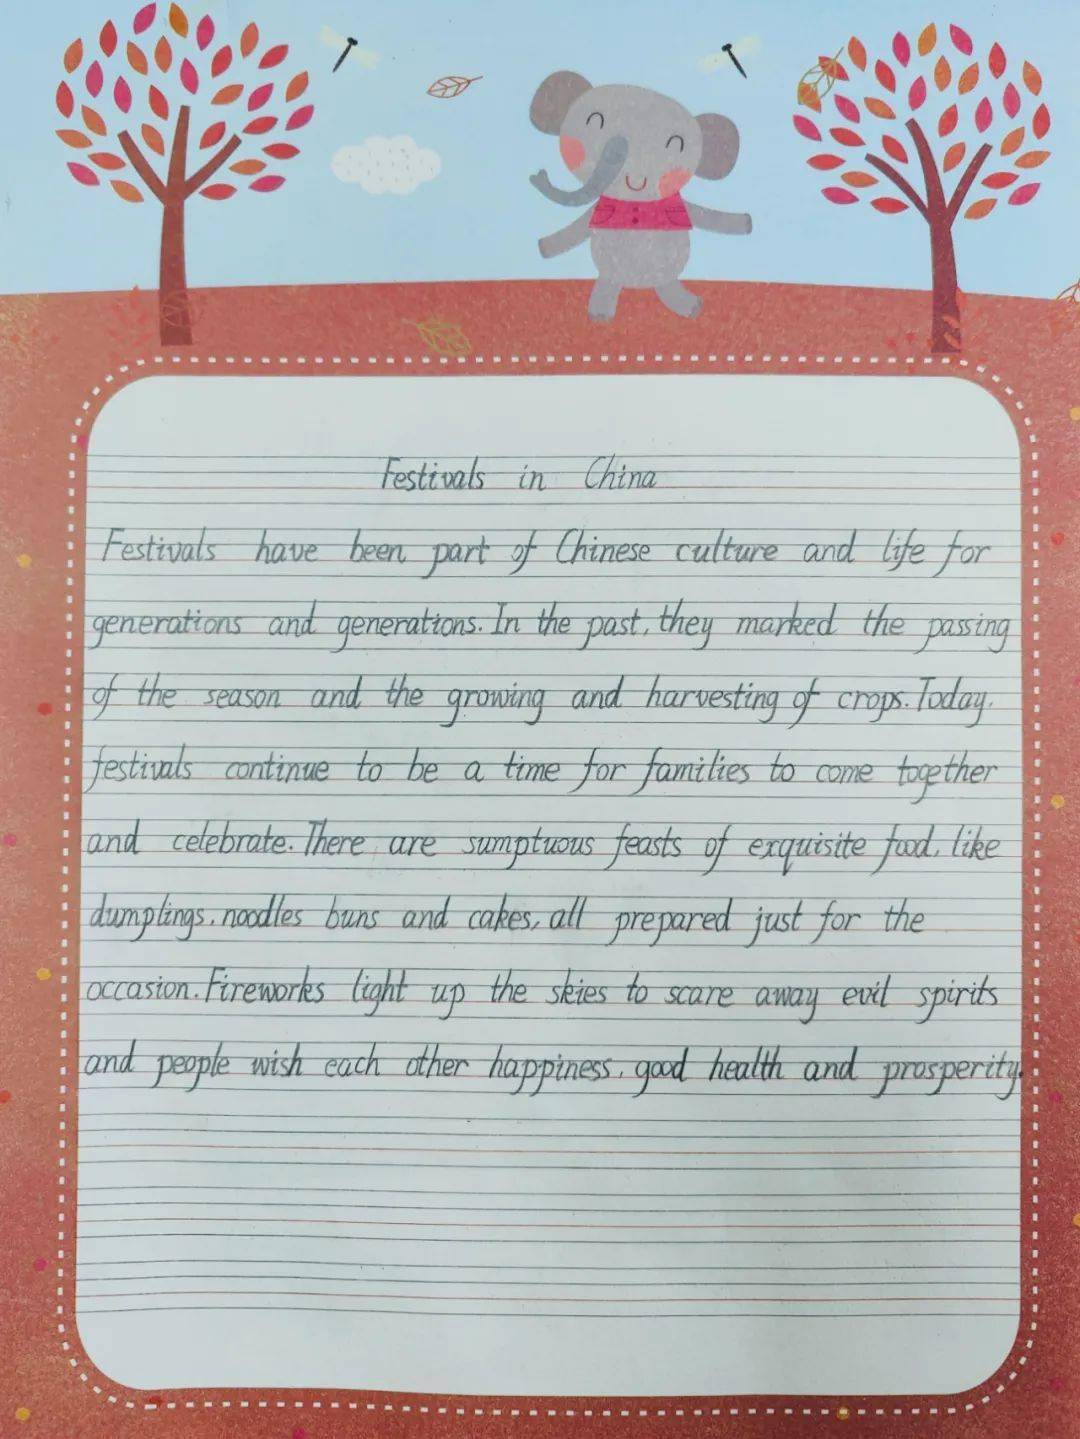 Festivals in China
Festivals have been part of Chinese culture and life for
generations and generations. In the past, they marked the passing
of the season and the growing and harvesting of crops. Today,
festivals continue to be a time for families to come together
and celebrate. There are sumptuous feasts of exquisite food, like
dumplings, noodles buns and cakes, all prepared just for the
occasion. Fireworks light up the skies to scare away evil spirits
and people wish each other happiness, good health and prosperity.